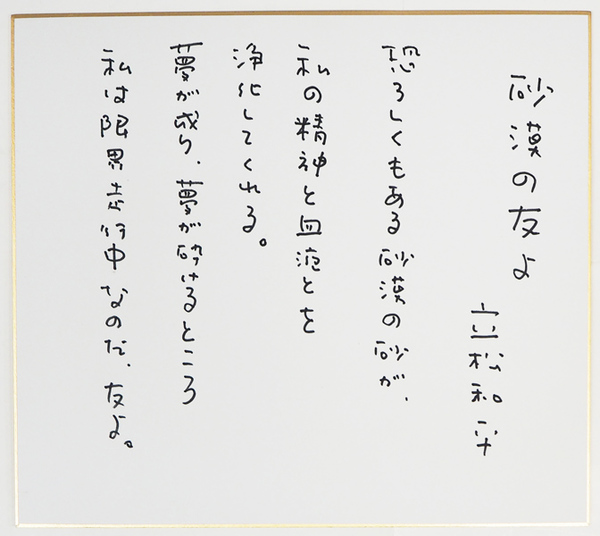 砂漠の友よ
立松和平
恐ろしくもある砂漠の砂が、
私の精神と血液とを
浄化してくれる。
夢が成り、夢が砕けるところ
私は限界走行中なのだ、友よ。